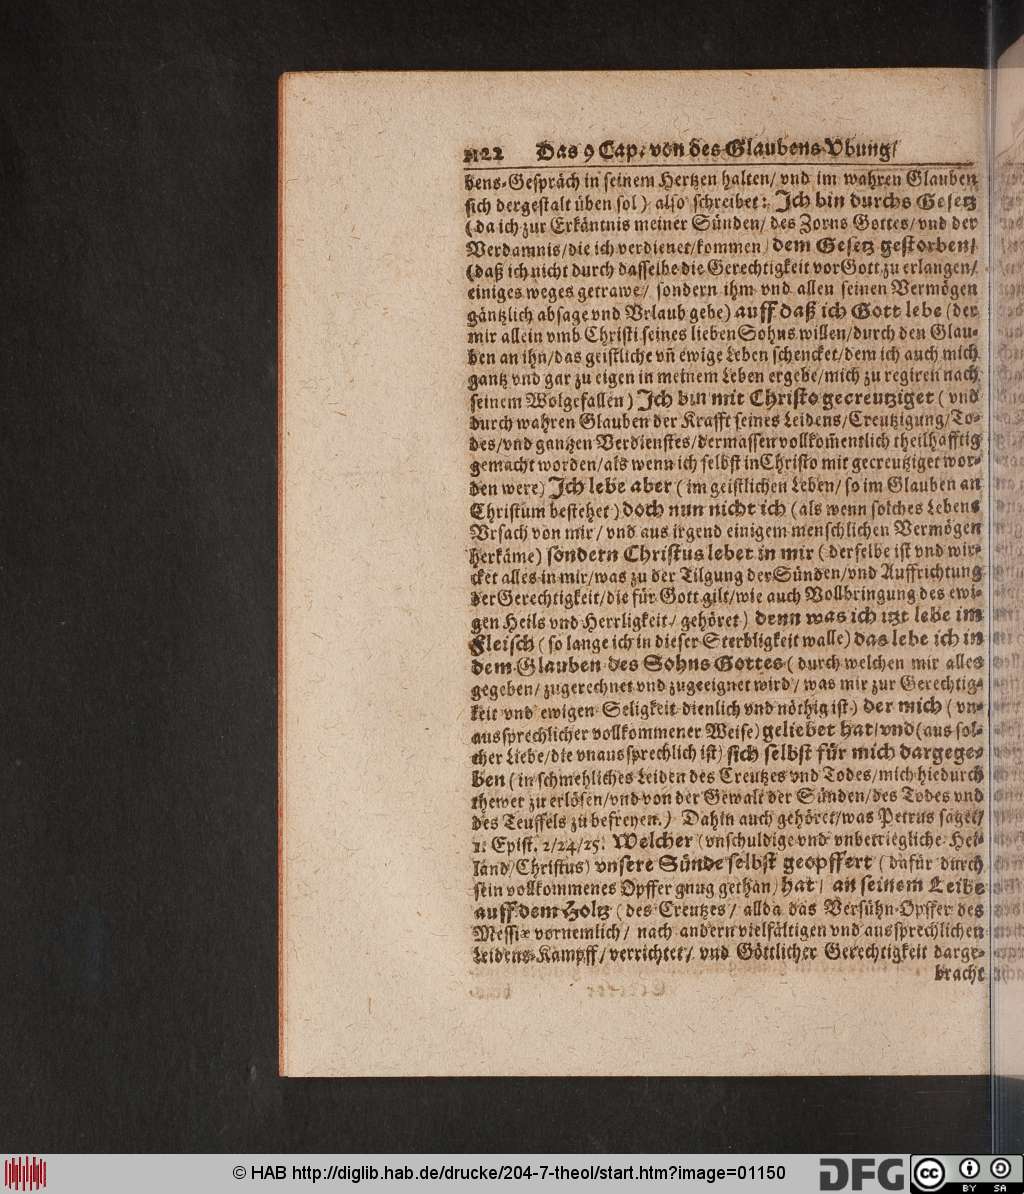 1122 Das 9 Cap. von des Glaubens Vbung/
bens-Gespräch in seinem Hertzen halten/ vnd im wahren Glauben
sich dergestalt üben sol) also schreibet: Ich bin durchs Gesetz
(da ich zur Erkäntnis meiner Sünden/ des Zorns Gottes/ vnd der
Verdamnis/die ich verdienet/kommen) dem Gesetz gestorben/
(daß ich nicht durch dasselbe die Gerechtigkeit vor Gott zu erlangen/
einiges weges getrawe/ sondern ihm vnd allen seinen Vermögen
gäntzlich absage vnd Vrlaub gebe) auff daß ich Gott lebe (der
mir allein vmb Christi seines lieben Sohns willen/durch den Glau-
ben an ihn/das geistliche vñ ewige Leben schencket/dem ich auch mich
gantz vnd gar zu eigen in meinem Leben ergebe/mich zu regiren nach
seinem Wolgefallen) Ich bin mit Christo gecreutziget (vnd
durch wahren Glauben der Krafft seines Leidens/Creutzigung/To-
des/vnd gantzen Verdienstes/dermassen vollkom̃entlich theilhafftig
gemacht worden/als wenn ich selbst in Christo mit gecreutziget wor-
den were) Ich lebe aber (im geistlichen Leben/ so im Glauben an
Christum bestehet) doch nun nicht ich (als wenn solches Lebens
Vrsach von mir/ vnd aus irgend einigem menschlichen Vermögen
herkäme) sondern Christus lebet in mir (derselbe ist vnd wir-
cket alles in mir/was zu der Tilgung der Sünden/vnd Auffrichtung
der Gerechtigkeit/die für Gott gilt/wie auch Vollbringung des ewi-
gen Heils vnd Herrligkeit/ gehöret) denn was ich itzt lebe im
Fleisch (so lange ich in dieser Sterbligkeit walle) das lebe ich in
dem Glauben des Sohns Gottes (durch welchen mir alles
gegeben/ zugerechnet vnd zugeeignet wird/ was mir zur Gerechtig-
keit vnd ewigen Seligkeit dienlich vnd nöthig ist) der mich (vn-
aussprechlicher vollkommener Weise) geliebet hat/ vnd (aus sol-
cher Liebe/die vnaussprechlich ist) sich selbst für mich dargege-
ben (in schmehliches Leiden des Creutzes vnd Todes/mich hiedurch
thewer zu erlösen/vnd von der Gewalt der Sünden/des Todes vnd
des Teuffels zu befreyen.) Dahin auch gehöret/was Petrus saget/
1. Epist. 2/24/25. Welcher (vnschuldige vnd vnbetriegliche Hei-
land/Christus) vnsere Sünde selbst geopffert (dafür durch
sein vollkommenes Opffer gnug gethan) hat/ an seinem Leibe
auff dem Holtz (des Creutzes/ allda das Versühn-Opffer des
Messiæ vornemlich/ nach andern vielfältigen vnd aussprechlichen
Leidens-Kampff/ verrichtet/ vnd Göttlicher Gerechtigkeit darge-
bracht
© HAB http://diglib.hab.de/drucke/204-7-theol/start.htm?image=01150
DFG
cc BY SA